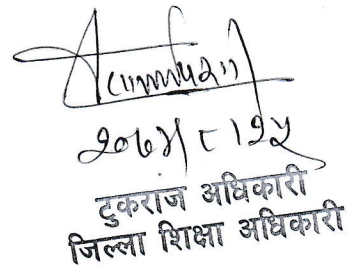 २०७४।८।२५
टुकराज अधिकारी
जिल्ला शिक्षा अधिकारी